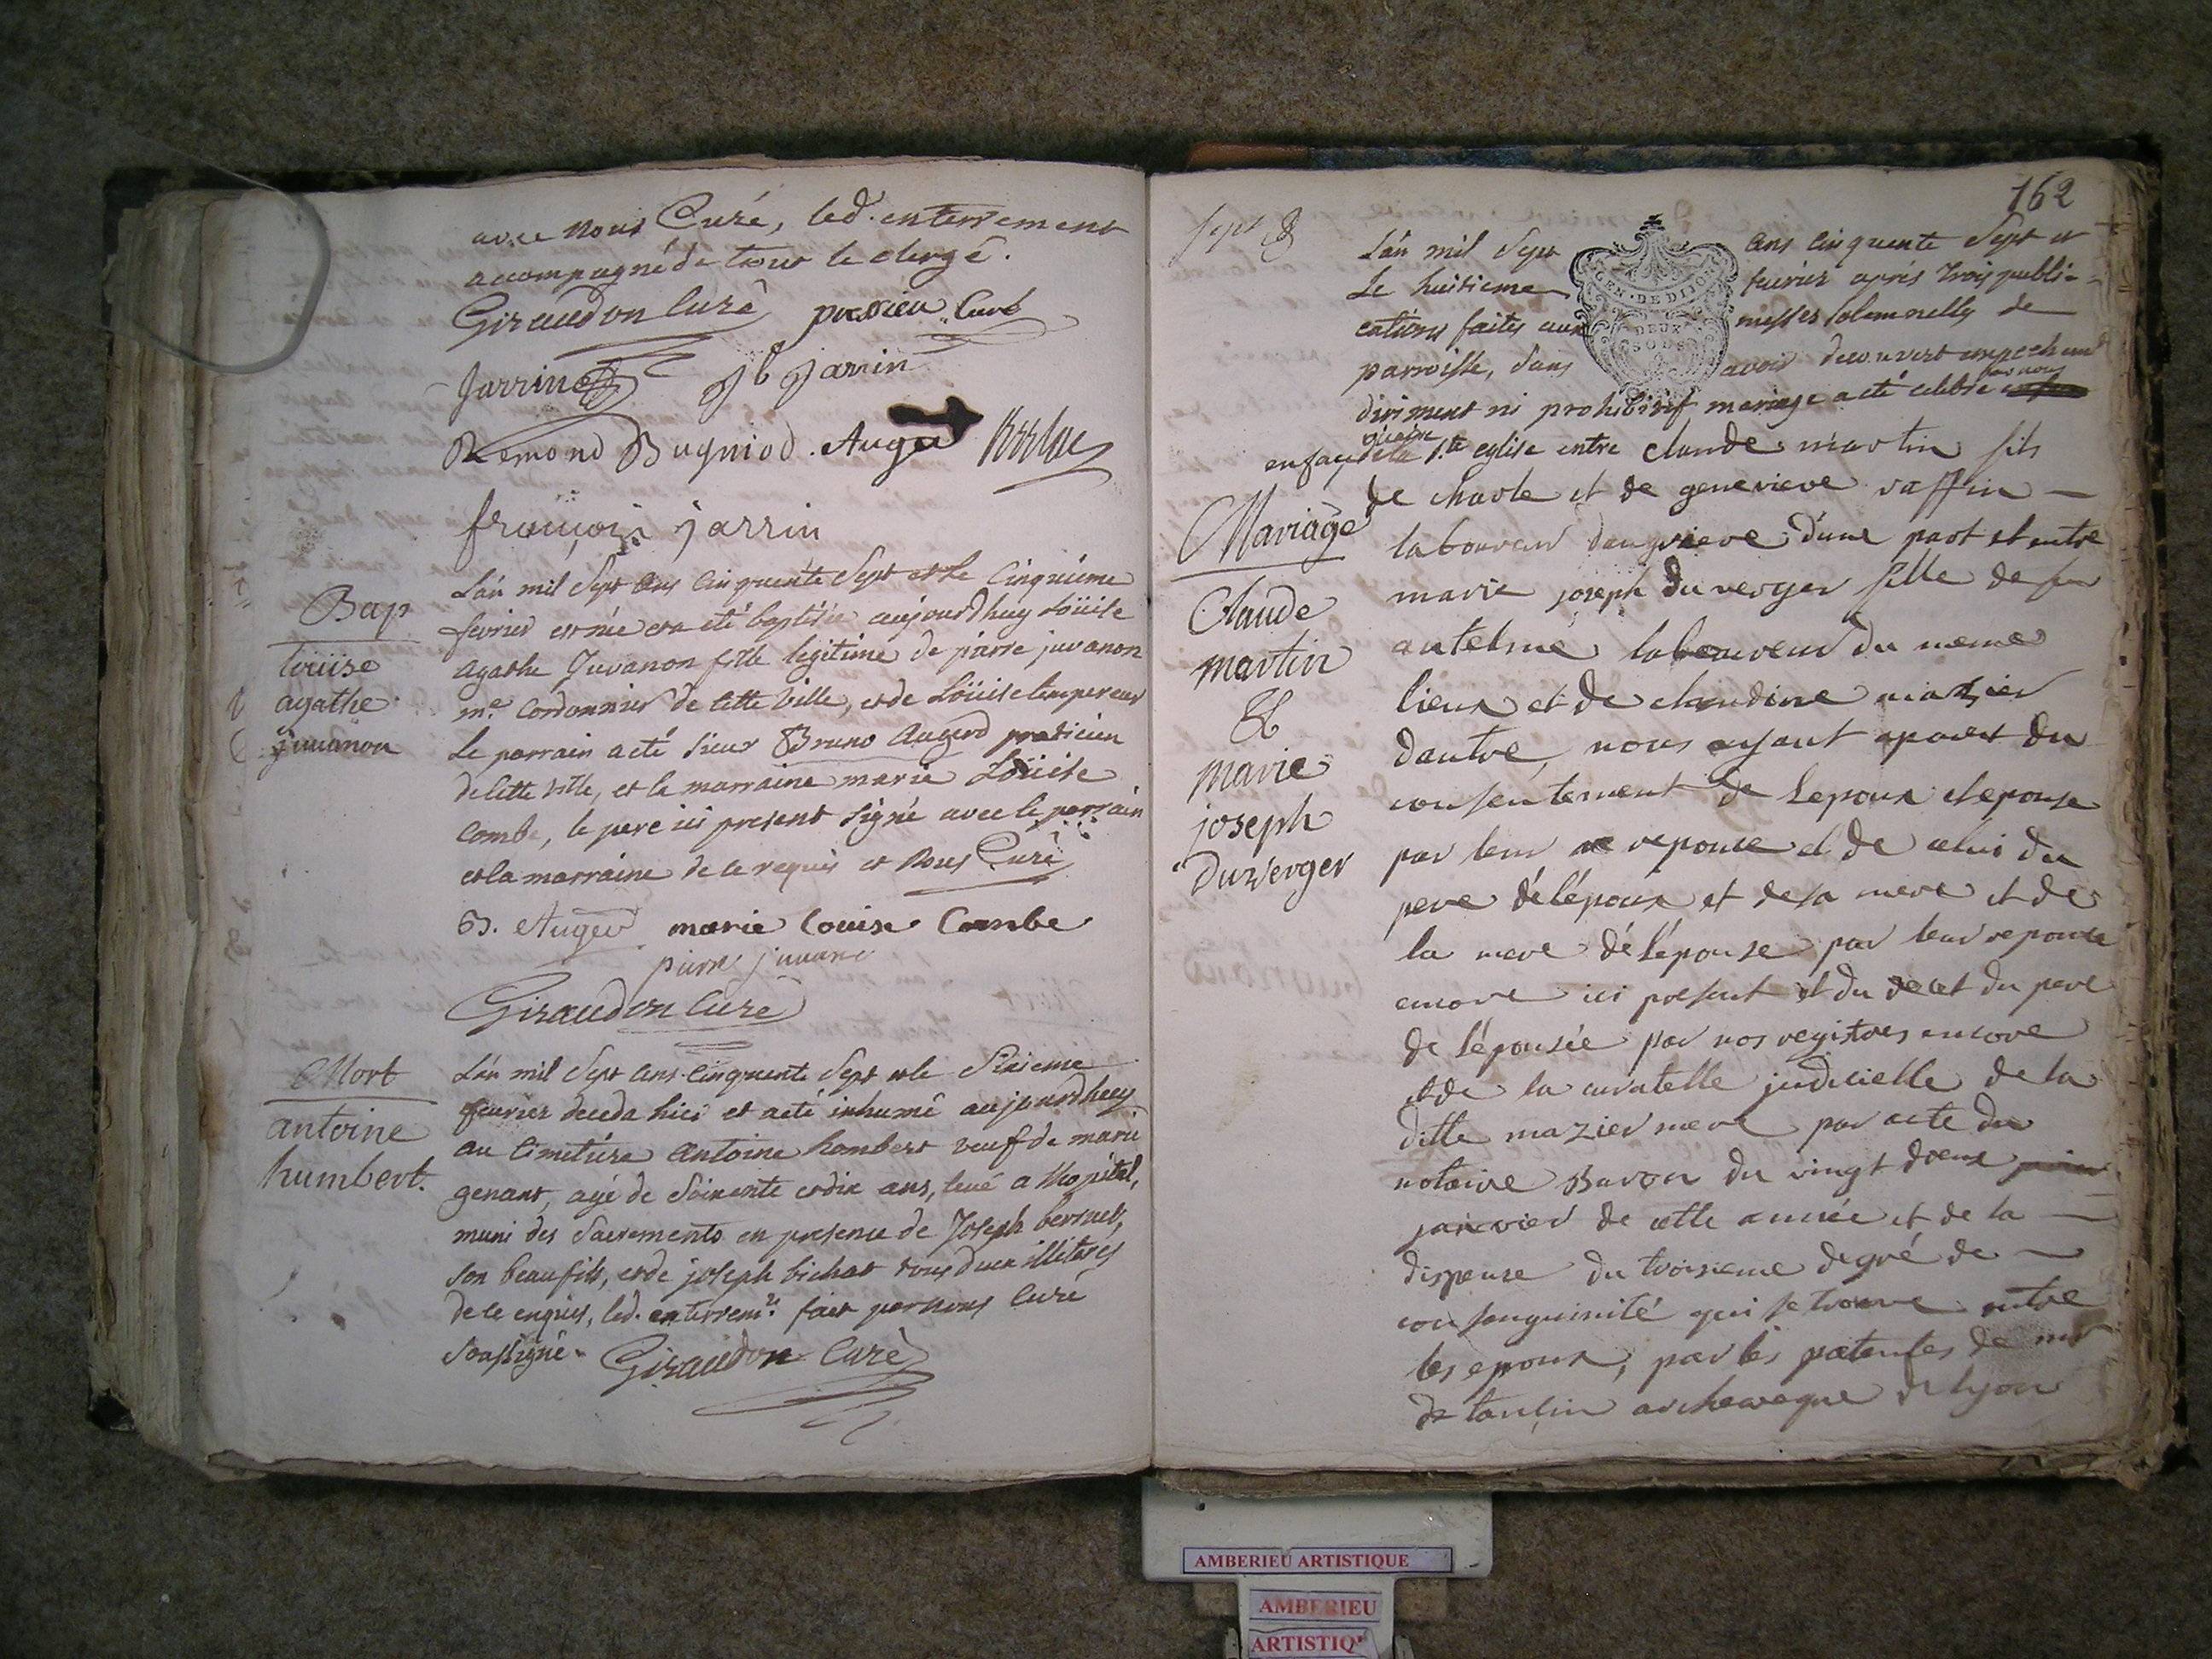 avec nous Curé, led. enterrement
accompagné de tout le clergé.
Giraudon Curé pressieu Curé
Jarrin Jb Jarrin
Remond Bugniod. Auger
françois jarrin
Bap
Loüise
agathe
juvanon
L'an mil Sept Cens Cinquante Sept et le Cinquieme
fevrier est née et a eté baptisée aujourdhuy Loüise
agathe Juvanon fille legitime de pierre juvanon
me. Cordonnier de cette Ville, et de Loüise Lempereur
Le parrain a eté Sieur Bruno Augerd praticien
de cette ville, et la marraine marie Loüise
Combe, le pere ici present signé avec le parrain
et la marraine de ce requis et nous Curé
B. Auger marie Louise Combe
pierre juvano
Giraudon Curé
Mort
antoine
humbert.
L'an mil Sept Cens Cinquante Sept et le Sixieme
fevrier deceda hier et a eté inhumé aujourdhuy
au Cimetiere Antoine humbert veuf de marie
genant, agé de Soixante et dix ans, levé a l'hopital,
muni des Sacrements en presence de Joseph bernet,
son beaufils, et de joseph bichat tous deux illiteres
de ce enquis, led. enterremt. fait par nous Curé
Soussigné. Giraudon Curé
162
L'an mil Sept Cens Cinquante Sept et
Le huitieme fevrier après trois publi-
cations faites aux messes solemnelles de
parroisse, sans avoir decouvert empechem
GEN. DE DIJON
DEUX
SOLS
dirimant ni prohibitif mariage a eté celebré par nous
en face de la Ste eglise entre claude martin fils
de charle et de genevieve raffin
Mariage
Claude
martin
&
marie
joseph
Duverger
laboureur d'une part et entre
marie joseph du verger fille de feu
antelme laboureur du meme
lieux et de claudine mazier
dautre, nous ayant aparu du
consentement de Lepoux et lepouse
par leur reponce et de celui du
pere de l'époux et de sa mere et de
la mere de l'épouse par leur reponce
encore ici present et du decet du pere
de l'épousée par nos registres encore
et de la curatelle judicielle de la
ditte mazier mere par acte du
notaire Baron du vingt deux
janvier de cette année et de la
dispense du troisieme degré de
consanguinité qui se trouve entre
les epoux, par les patentes de mr
de tancin archeveque de lyon
AMBERIEU ARTISTIQUE
AMBERIEU
ARTISTIQ